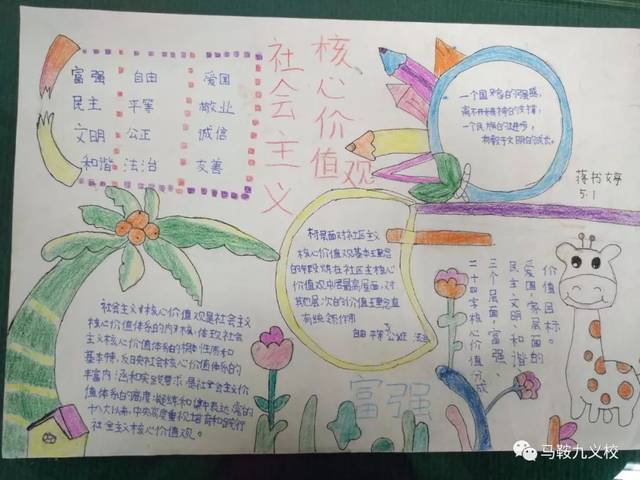 社会主义
核心价值观
富强 自由 爱国
民主 平等 敬业
文明 公正 诚信
和谐 法治 友善
一个国家的强盛,
离不开精神的支撑,
一个民族的进步,
有赖于文明的成长。
蒋书婷
5.1
社会主义核心价值观是社会主义
核心价值体系的内核,体现社会
主义核心价值体系的根本性质和
基本特征,反映社会核心价值体系的
丰富内涵和实践要求,是社会主义价
值体系的高度凝练和集中表达。党的
十八大以来,中央高度重视培育和践行
社会主义核心价值观。
核心价值观基本理念
价值观中居最高层面,对
其他层次的价值理念具
有统领作用
自由 平等 公正 法治
富强
二十四字核心价值分成
三个层面:富强、
民主、文明、和谐
价值目标。
马鞍九义校